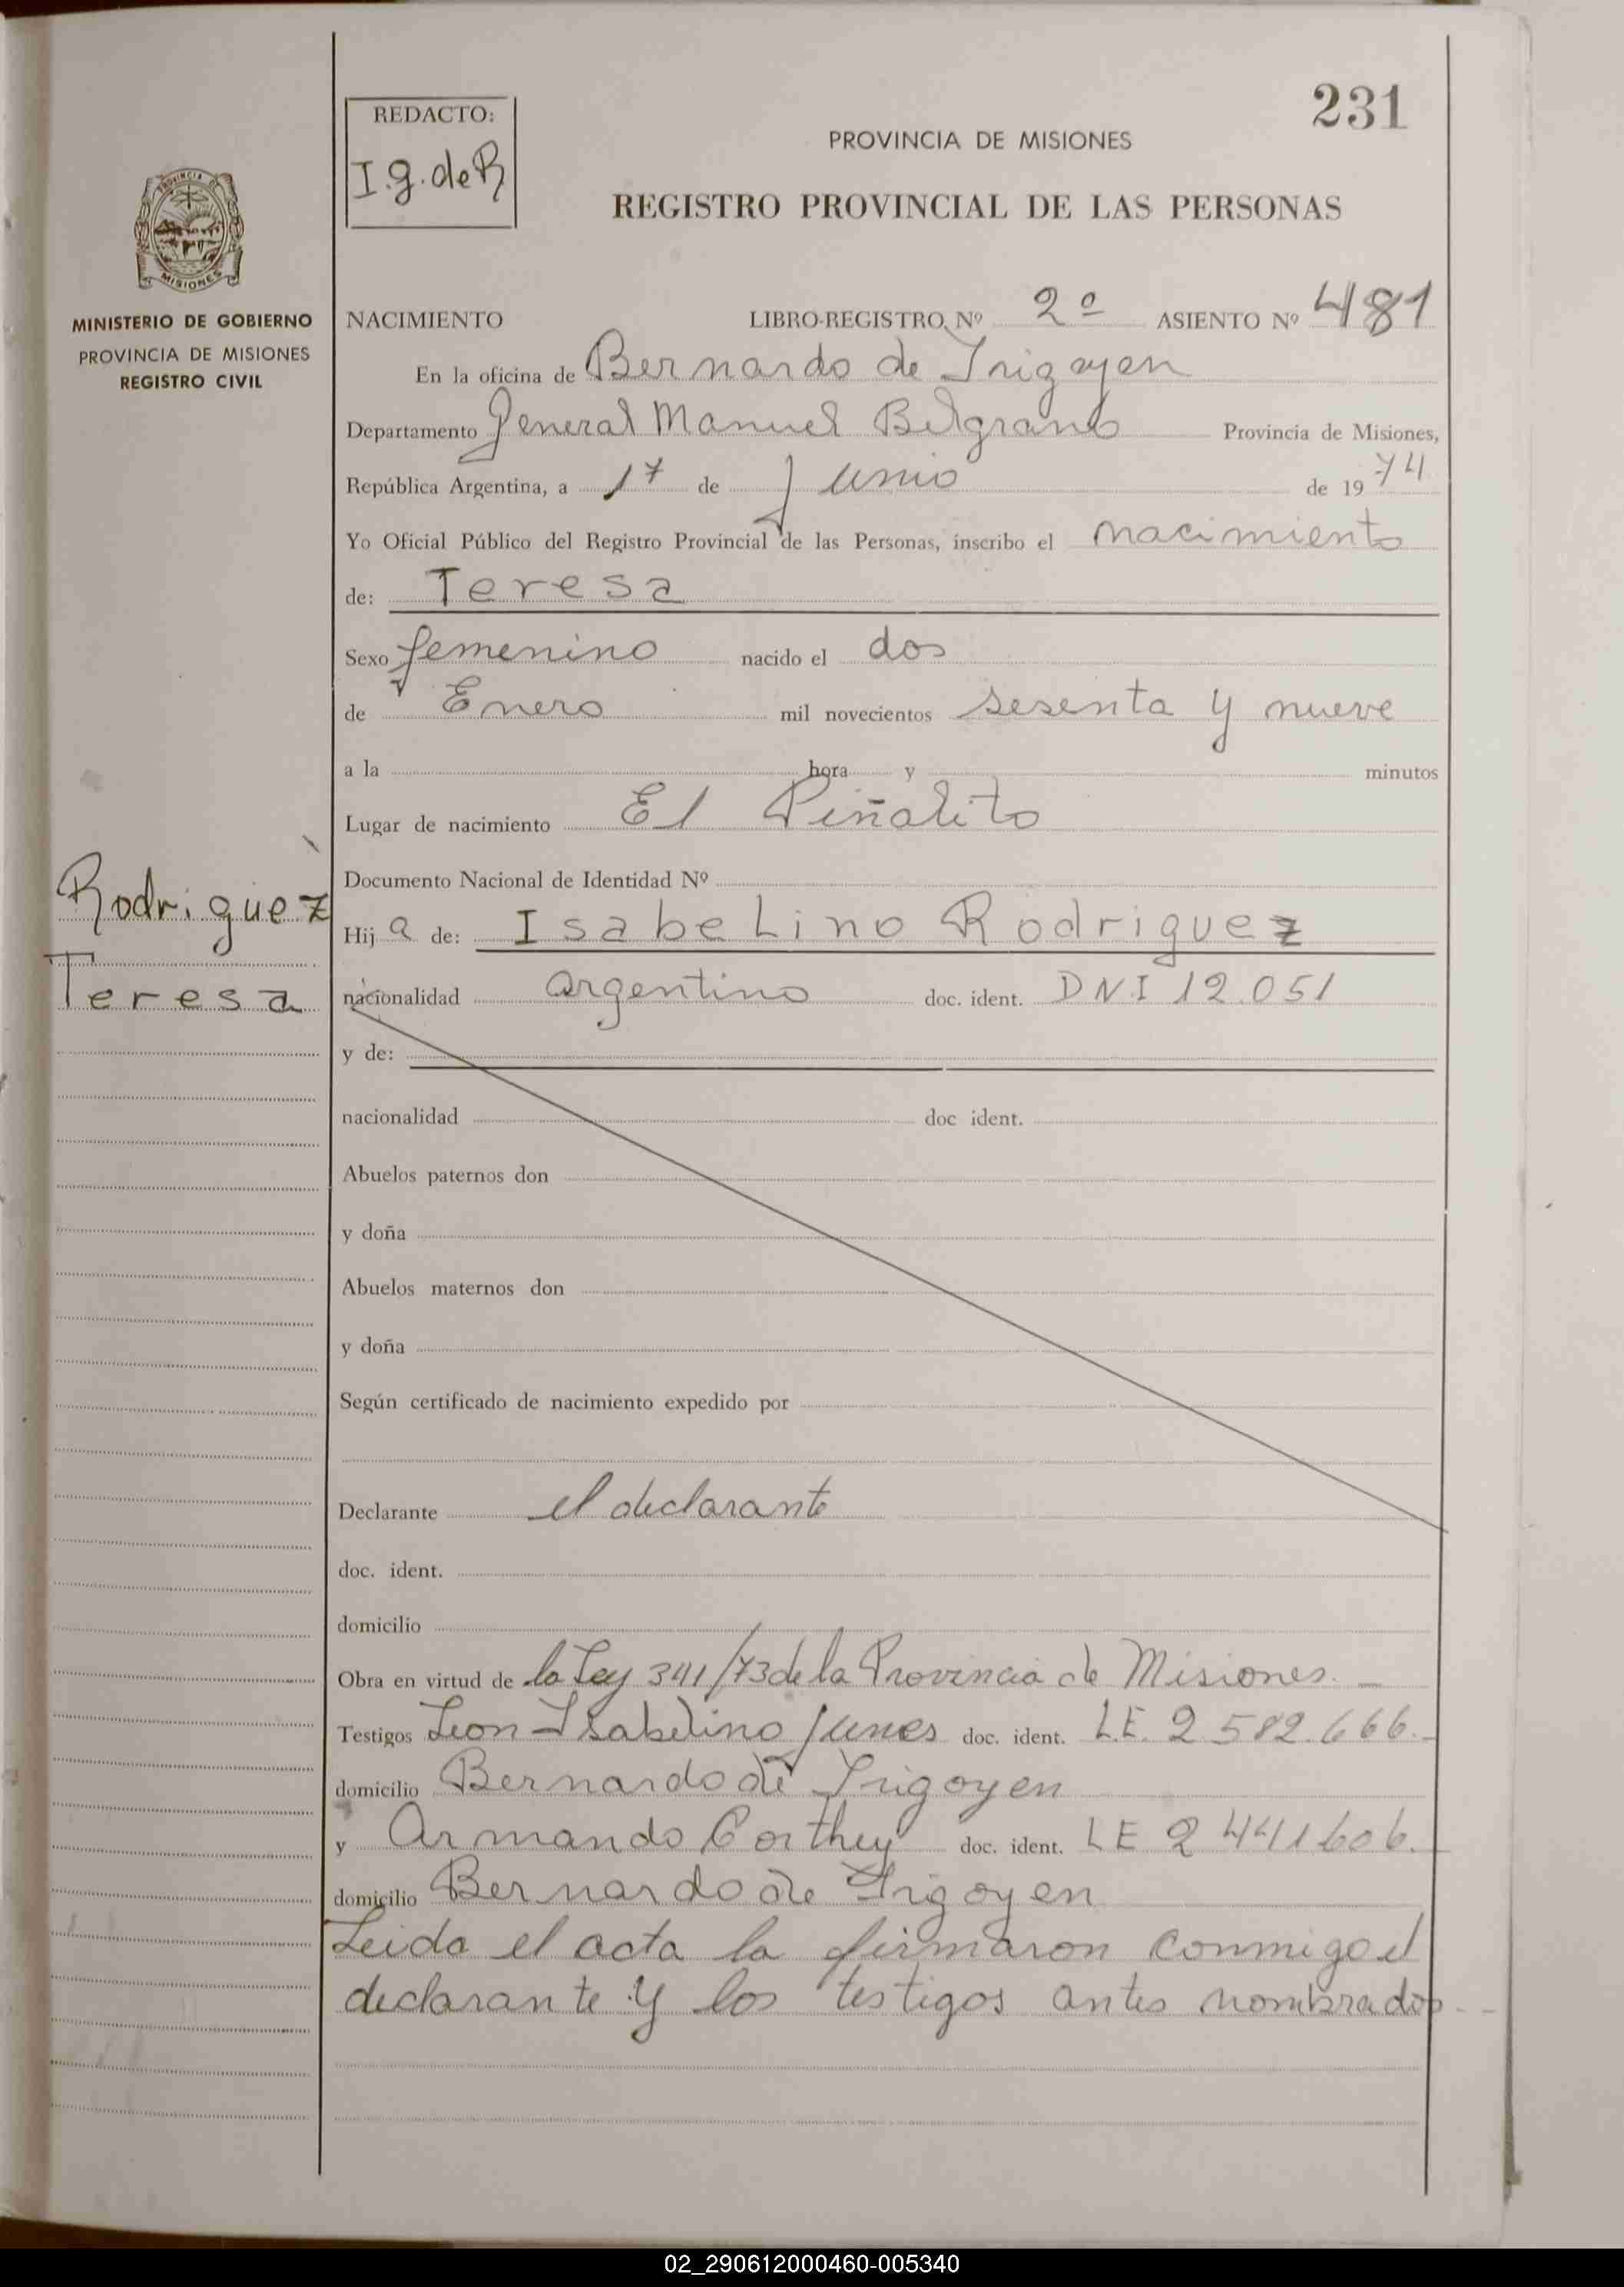 231
REDACTO:
I.g.deR
PROVINCIA DE MISIONES
REGISTRO PROVINCIAL DE LAS PERSONAS
PROVINCIA DE
MISIONES
MINISTERIO DE GOBIERNO
PROVINCIA DE MISIONES
REGISTRO CIVIL
NACIMIENTO LIBRO-REGISTRO Nº 2º ASIENTO Nº 481
En la oficina de Bernardo de Irigoyen
Departamento General Manuel Belgrano Provincia de Misiones,
República Argentina, a 17 de Junio de 19 74
Yo Oficial Público del Registro Provincial de las Personas, inscribo el nacimiento
de: Teresa
Sexo femenino nacido el dos
de Enero mil novecientos sesenta y nueve
a la hora y minutos
Lugar de nacimiento El Piñalito
Documento Nacional de Identidad Nº
Rodriguez
Teresa
Hij a de: Isabelino Rodriguez
nacionalidad argentino doc. ident. DNI 12.051
y de:
nacionalidad doc ident.
Abuelos paternos don
y doña
Abuelos maternos don
y doña
Según certificado de nacimiento expedido por
Declarante el declarante
doc. ident.
domicilio
Obra en virtud de la Ley 341/73 de la Provincia de Misiones.
Testigos Leon Isabelino Junes doc. ident. L.E. 2 582.666.
domicilio Bernardo de Irigoyen
y Armando Corthey doc. ident. LE 2 441606.
domicilio Bernardo de Irigoyen
Leida el acta la firmaron conmigo el
declarante y los testigos antes nombrados
02_290612000460-005340